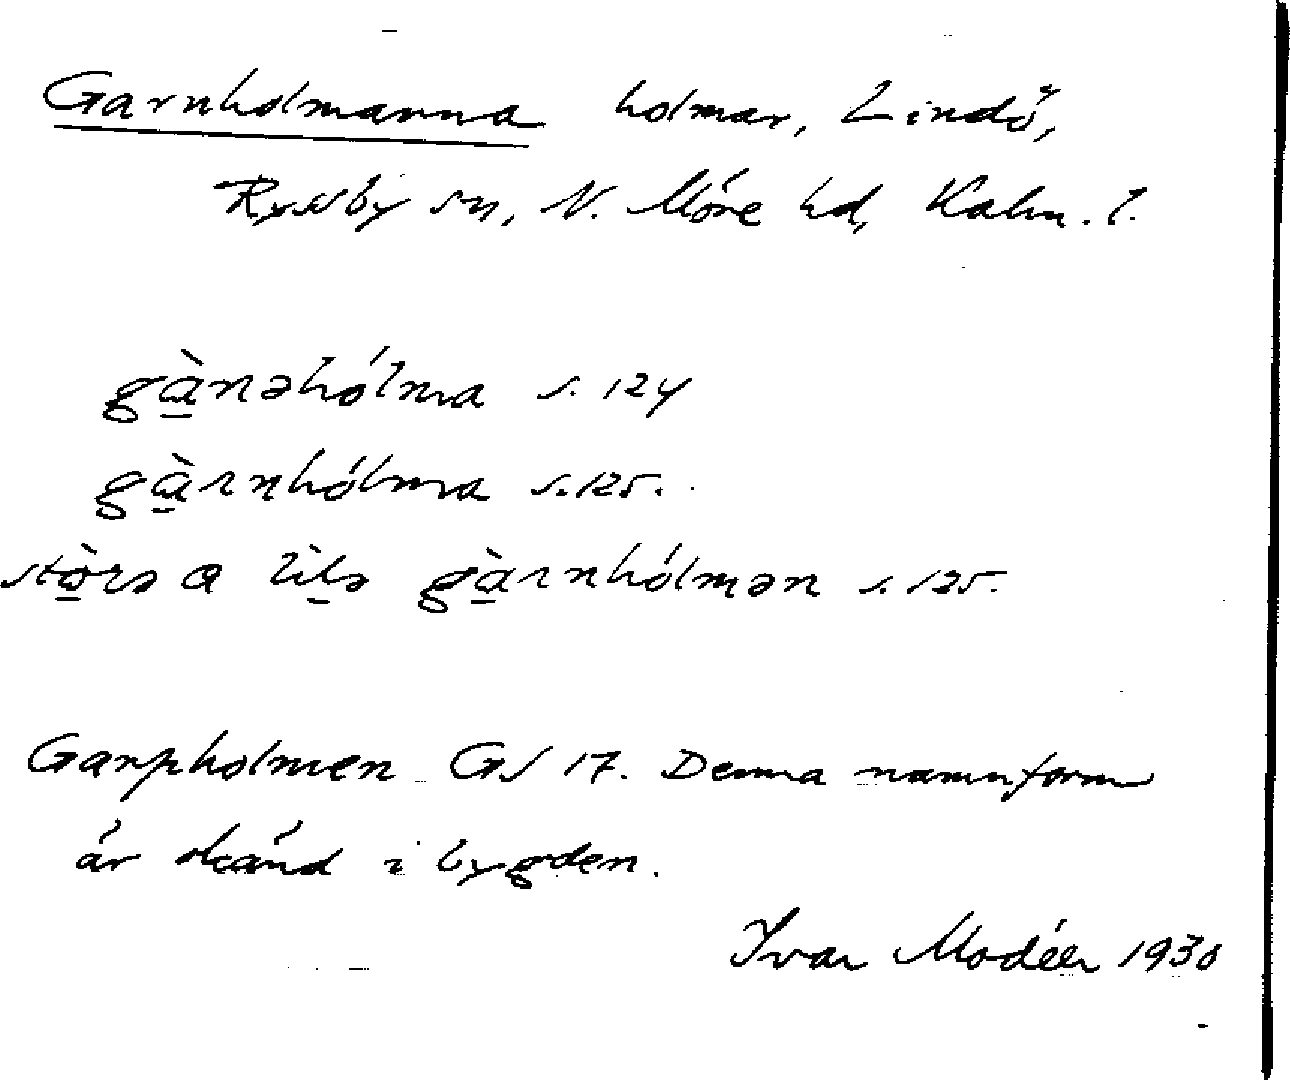 Garnholmarna holmar, Lindö,
Ryssby sn, N. Möre hd, Kalm. l.
gà̱nəhólma s. 124
gà̱rnhólma s. 125.
stò̱rə a lìlə gà̱rnhólmən s. 125.
Garpholmen GS 17. Denna namnform
är okänd i bygden.
Ivar Modéer 1930